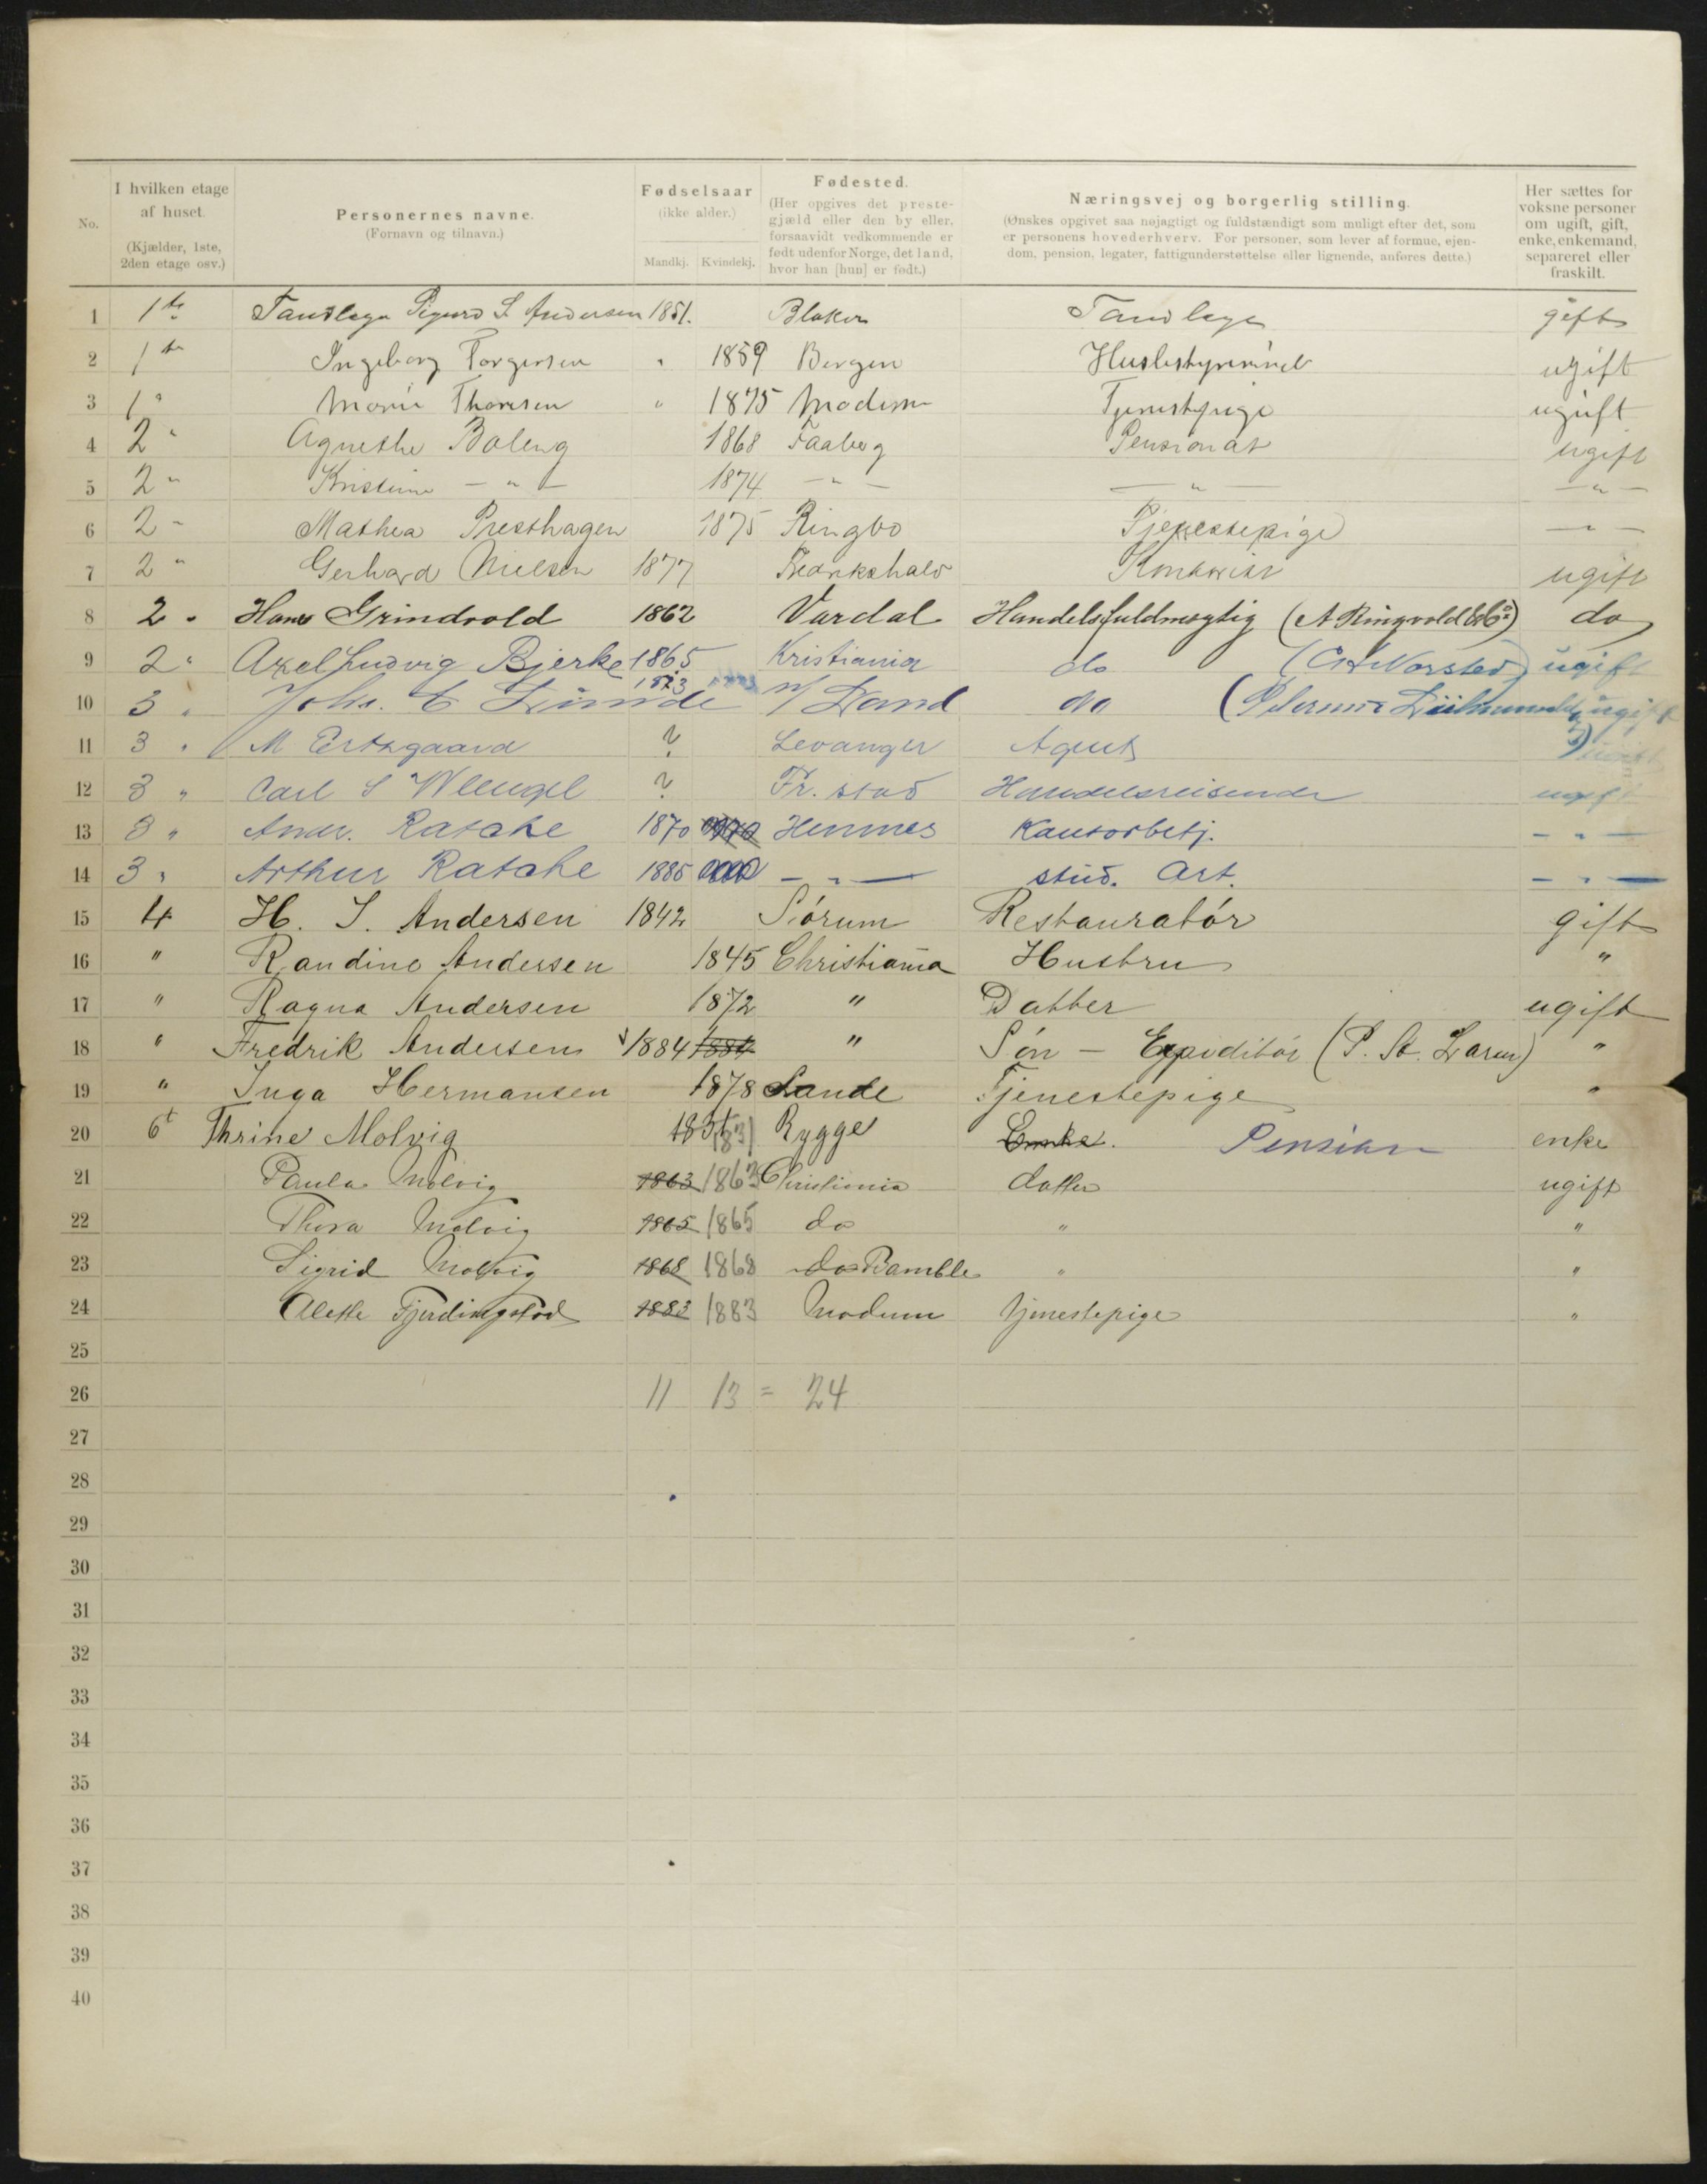 No.
I hvilken etage af huset. (Kjælder, 1ste, 2den etage osv.)
Personernes navne. (Fornavn og tilnavn.)
Fødselsaar (ikke alder.) Mandkj. Kvindekj.
Fødested. (Her opgives det prestegjæld eller den by eller, forsaavidt vedkommende er født udenfor Norge, det land, hvor han [hun] er født.)
Næringsvej og borgerlig stilling. (Ønskes opgivet saa nøjagtigt og fuldstændigt som muligt efter det, som er personens hovederhverv. For personer, som lever af formue, ejendom, pension, legater, fattigunderstøttelse eller lignende, anføres dette.)
Her sættes for voksne personer om ugift, gift, enke, enkemand, separeret eller fraskilt.
1 1ste Tandlæge Sigurd S. Andersen 1851. Blaker Tandlæge gift
2 1ste Ingeborg Torgersen " 1859 Bergen Husbestyrerinde ugift
3 1" Marie Thoresen " 1875 Modum Tjenestepige ugift
4 2" Agnethe Boleng 1868 Faaberg Pensionat ugift
5 2" Kristine — " — 1874 — " — — " — — " —
6 2" Mathea Presthagen 1875 Ringbo Tjenestepige — " —
7 2" Gerhard Nielsen 1877 Fredrikshald Kontorist ugift
8 2 " Hans Grindvold 1862 Vardal Handelsfuldmægtig (A Ringvold & Co) do
9 2" Axel Ludvig Bjerke 1865 Kristiania do (C A Norsted) ugift
10 3 " Johs. C Lunde 1873 n/ Land do ugift
11 3 " M Ertzgaard ? Levanger Agent ugift
12 3 " Carl S ? Fr. stad Handelsreisende ugift
13 3 " Andr. Ratche 1870 Hemnes Kontorbetj. — " —
14 3 " Arthur Ratche 1885 — " — stud. Art. — " —
15 4 H. S. Andersen 1842 Sørum Restauratør gift
16 " Randine Andersen 1845 Christiania Hustru "
17 " Ragna Andersen 1872 " Datter ugift
18 " Fredrik Andersen 1884 1884 " Søn — Expeditør (P. St. Larsen) "
19 " Inga Hermansen 1878 Sande Tjenestepige "
20 6t Thrine Molvig 1831 1831 Rygge Enke. Pension enke
21 Paula Molvig 1863 1863 Christiania datter ugift
22 Thora Molvig 1865 1865 do " "
23 Sigrid Molvig 1868 1868 do Bamble " "
24 Alette Fjerdingstad 1883 1883 Modum tjenestepige "
25
26 11 13 = 24
27
28
29
30
31
32
33
34
35
36
37
38
39
40